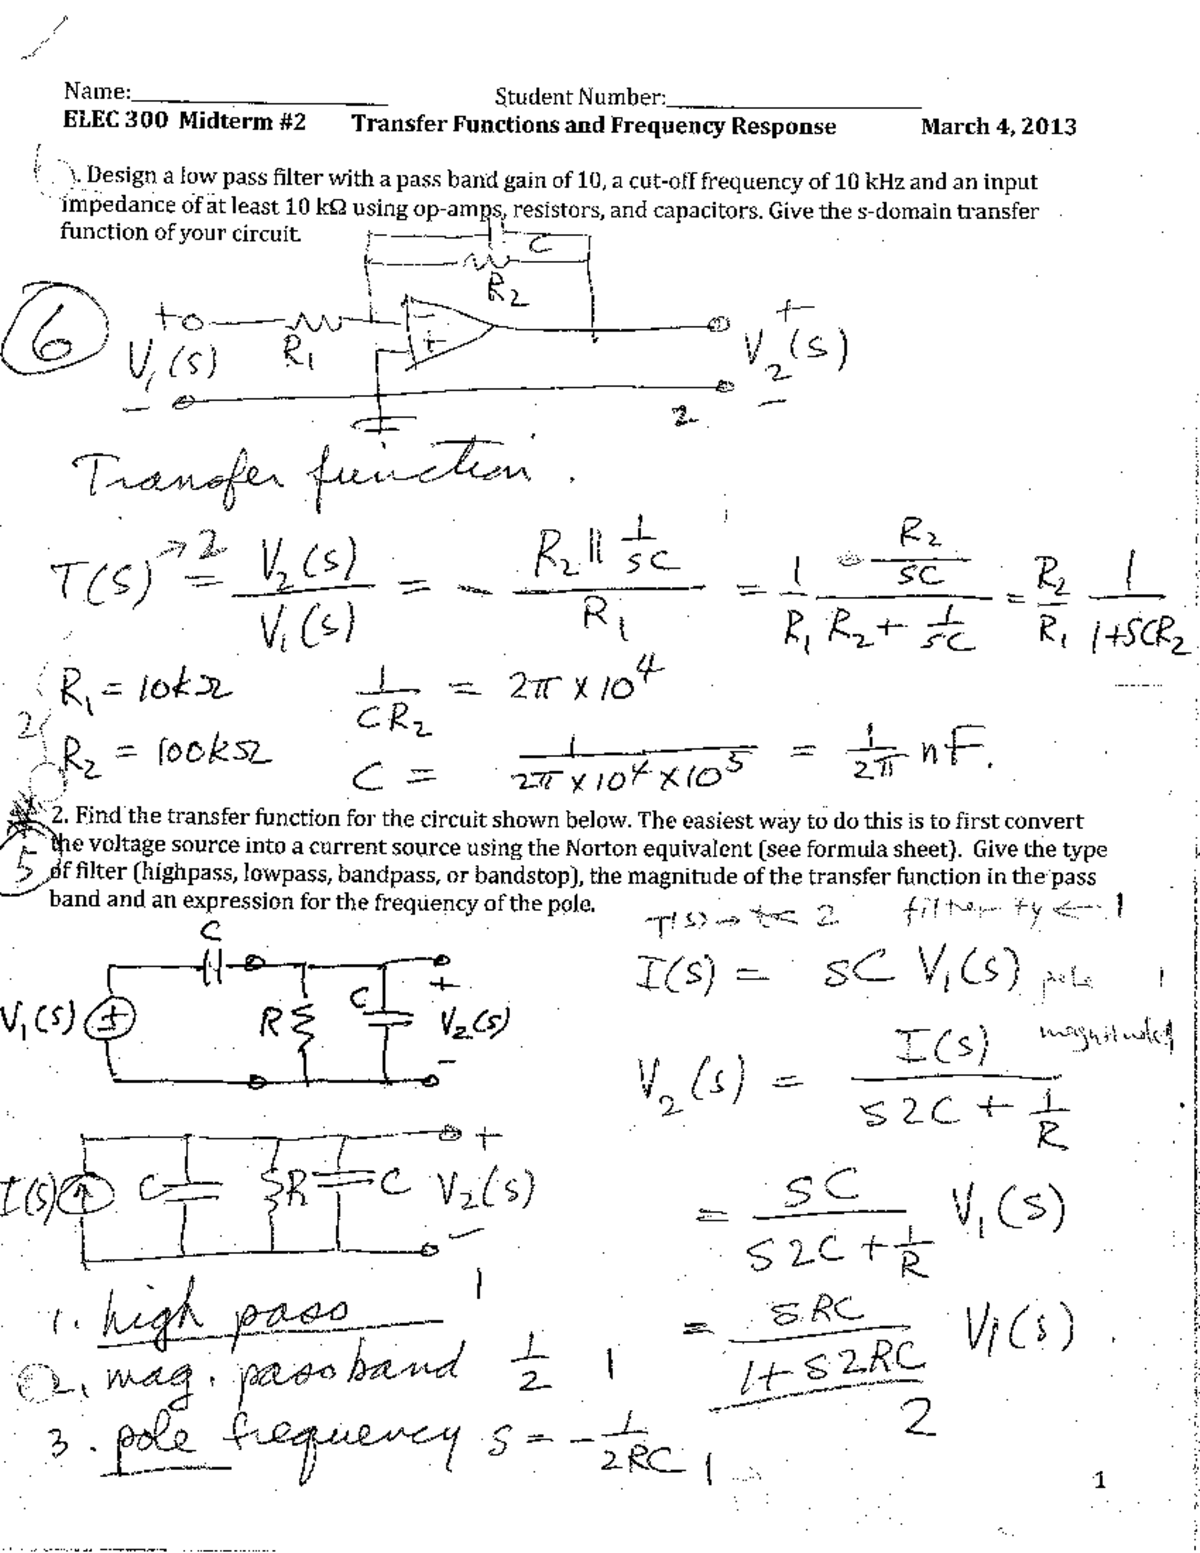 Name:
Student Number:
ELEC 300 Midterm #2 Transfer Functions and Frequency Response March 4, 2013
. Design a low pass filter with a pass band gain of 10, a cut-off frequency of 10 kHz and an input
impedance of at least 10 kΩ using op-amps, resistors, and capacitors. Give the s-domain transfer
function of your circuit.
C
R2
6
+ V1(s) -
R1
- +
+ V2(s) -
2
Transfer function.
T(s) → 2 = V2(s)/V1(s) = - (R2 || 1/sC)/R1 = 1/R1 · (R2/sC)/(R2 + 1/sC) = R2/R1 1/(1+SCR2)
R1 = 10kΩ 1/CR2 = 2π x 10^4
2
R2 = 100kΩ C = 1/(2π x 10^4 x 10^5) = 1/2π nF.
2. Find the transfer function for the circuit shown below. The easiest way to do this is to first convert
the voltage source into a current source using the Norton equivalent (see formula sheet). Give the type
of filter (highpass, lowpass, bandpass, or bandstop), the magnitude of the transfer function in the pass
band and an expression for the frequency of the pole.
5
T(s) → 2 filter ty ← 1
C
V1(s) + R C + V2(s) -
I(s) = sC V1(s) pole 1
magnitude 1
V2(s) = I(s)/(s2C + 1/R)
I(s) C R C + V2(s) -
= sC/(s2C + 1/R) V1(s)
1. high pass 1
= sRC/(1+s2RC) V1(s).
2. mag. passband 1/2 1
2
3. pole frequency s = - 1/2RC 1
1